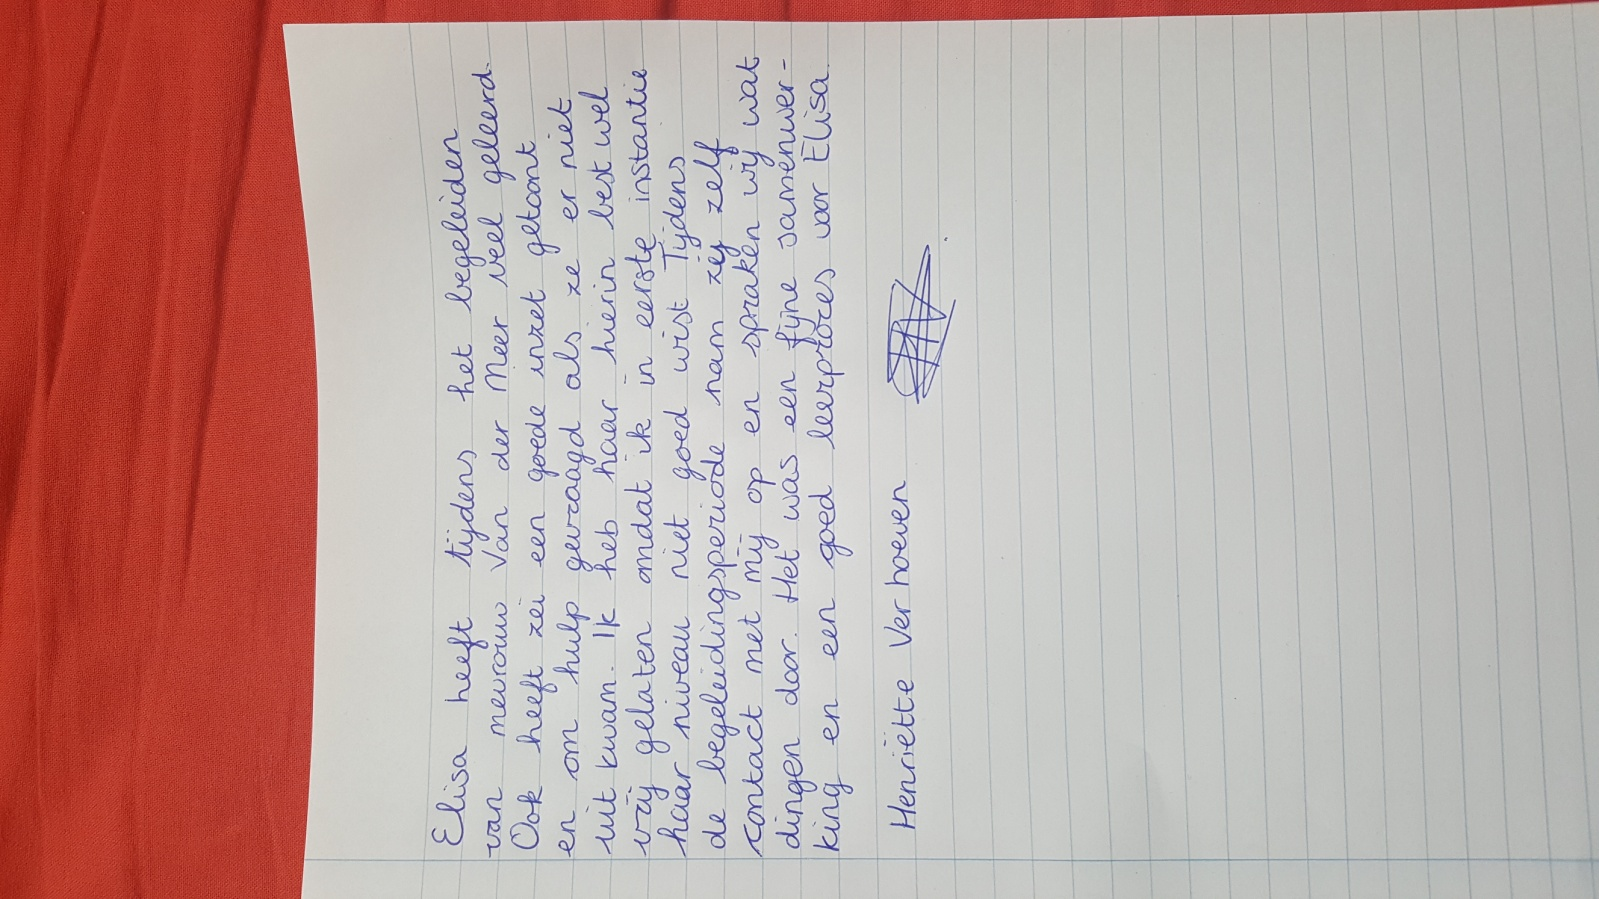 Elisa heeft tijdens het begeleiden
van mevrouw Van der Meer veel geleerd.
Ook heeft zei een goede inzet getoont
en om hulp gevraagd als ze er niet
uit kwam. Ik heb haar hierin best wel
vrij gelaten omdat ik in eerste instantie
haar niveau niet goed wist. Tijdens
de begeleidingsperiode nam zij zelf
contact met mij op en spraken wij wat
dingen door. Het was een fijne samenwer-
king en een goed leerproces voor Elisa.
Henriëtte Verhoeven